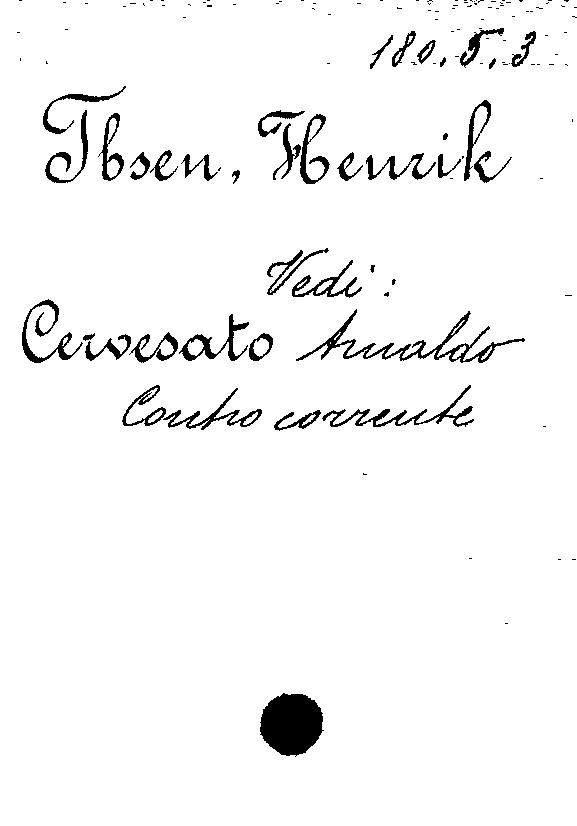 180.5.3
Ibsen, Henrik
Vedi:
Cervesato Arnaldo
Contro corrente